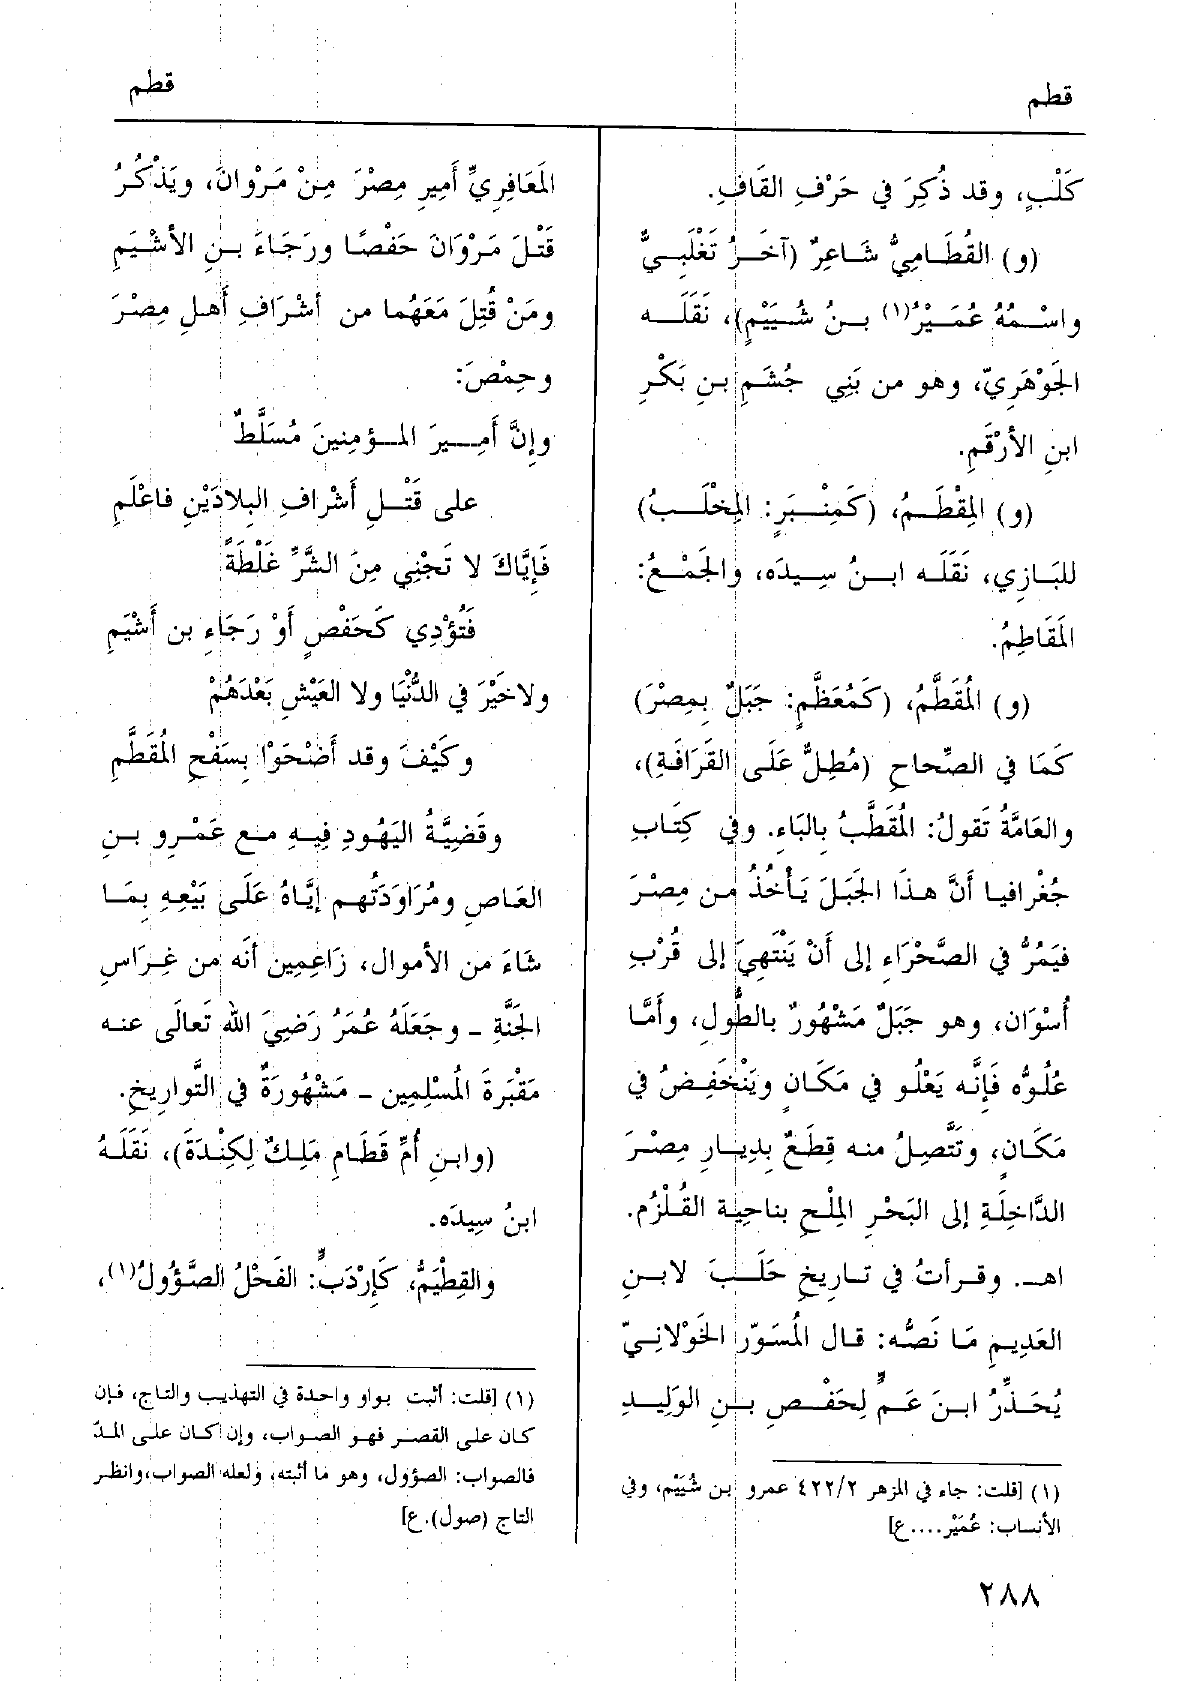 قطم
قطم
كَلْبٍ، وقد ذُكِرَ في حَرْفِ القَافِ.
(و) القُطَامِيُّ شَاعِرٌ (آخَرُ تَغْلَبِيٌّ
واسْمُهُ عُمَيْرُ(١) بنُ شُيَيْمٍ)، نَقَلَه
الجَوْهَرِيّ، وهو من بَنِي جُشَمِ بنِ بَكْرِ
ابنِ الأَرْقَمِ.
(و) المِقْطَمُ، (كَمِنْبَرٍ: المِخْلَبُ)
للبَازِي، نَقَلَه ابنُ سِيدَه، والجَمْعُ:
المَقَاطِمُ.
(و) المُقَطَّمُ، (كَمُعَظَّمٍ: جَبَلٌ بِمِصْرَ)
كَمَا في الصِّحاحِ (مُطِلٌّ عَلَى القَرَافَةِ)،
والعَامَّةُ تَقولُ: المُقَطَّبُ بِالبَاءِ. وفي كِتَابِ
جُغْرافيا أَنَّ هذَا الجَبَلَ يَأْخُذُ من مِصْرَ
فيَمُرُّ في الصَّحْرَاءِ إلى أَنْ يَنْتَهِيَ إلى قُرْبِ
أُسْوَان، وهو جَبَلٌ مَشْهُورٌ بالطُّولِ، وأَمَّا
عُلُوُّه فَإِنَّه يَعْلُو في مَكَانٍ ويَنْخَفِضُ في
مَكَانٍ، وتَتَّصِلُ منه قِطَعٌ بِدِيارِ مِصْرَ
الدَّاخِلَةِ إلى البَحْرِ المِلْحِ بناحِيَة القُلْزُم.
اهـ. وقرأتُ في تاريخِ حَلَبَ لابنِ
العَدِيمِ مَا نَصُّه: قال المُسَوّر الخَوْلانِيّ
يُحَذِّرُ ابنَ عَمٍّ لِحَفْصِ بنِ الوَلِيدِ
(١) [قلت: جاء في المزهر ٤٢٢/٢ عمرو بن شُيَيْم، وفي
الأنساب: عُمَيْر.... ع]
المَعَافِرِيِّ أَمِيرِ مِصْرَ مِنْ مَرْوانَ، ويَذْكُرُ
قَتْلَ مَرْوَانَ حَفْصًا ورَجَاءَ بنِ الأشْيَمِ
ومَنْ قُتِلَ مَعَهُما من أَشْرَافِ أَهلِ مِصْرَ
وحِمْصَ:
وإنَّ أَمِيرَ المؤمِنينَ مُسَلَّطٌ
على قَتْلِ أَشْرافِ البِلادَيْنِ فاعْلَمِ
فَإِيَّاكَ لا تَجْنِي مِنَ الشَّرِّ غَلْطَةً
فَتُؤْدِي كَحَفْصٍ أَوْ رَجَاءِ بن أَشْيَمِ
ولاخَيْرَ في الدُّنْيَا ولا العَيْشِ بَعْدَهُمْ
وكَيْفَ وقد أَضْحَوْا بِسَفْحِ المُقَطَّمِ
وقَضِيَّةُ اليَهُودِ فِيهِ مع عَمْرِو بنِ
العَاصِ ومُرَاوَدَتُهم إِيَّاهُ عَلَى بَيْعِهِ بِمَا
شَاءَ من الأموال، زَاعِمِين أنَه من غِرَاسِ
الجَنَّةِ ـ وجَعَلَهُ عُمَرُ رَضِيَ اللهُ تَعالَى عنه
مَقْبَرَةَ المُسْلِمِين ـ مَشْهُورَةٌ في التَّوارِيخِ.
(وابنِ أُمِّ قَطَامِ مَلِكٌ لِكِنْدَةَ)، نَقَلَهُ
ابنُ سِيدَه.
والقِطْيَمُّ، كَإِرْدَبٍّ: الفَحْلُ الصَّؤُولُ(١)،
(١) [قلت: أثبت بواو واحدة في التهذيب والتاج، فإن
كان على القصر فهو الصواب، وإن كان على المدّ
فالصواب: الصؤول، وهو ما أثبته، ولعله الصواب، وانظر
التاج (صول). ع]
٢٨٨